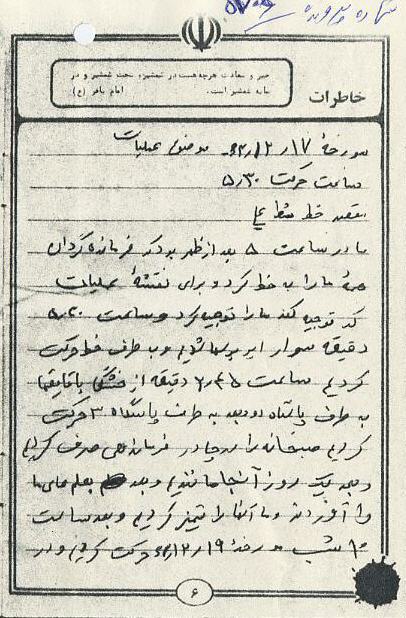 شماره پرونده
خیر و سعادت هرچه هست در شمشیر، تحت شمشیر و در
سایه شمشیر است. امام باقر (ع)
خاطرات
مورخهٔ ۱۷ر۱۲ر۶۳ موضوع عملیات
ساعت حرکت ۵٫۳۰
مقصد خط شط علی
ما در ساعت ۵ بعد از ظهر بود که فرمانده گردان
همهٔ ما را به خط کرد و برای نقشهٔ عملیات
که توجیه کند ما را توجیه کرد و ساعت ۵٫۲۰
دقیقه سوار ایر بوسها شدیم و به طرف خط حرکت
کردیم ساعت ۶٫۴۵ دقیقه از خشکی با قایقها
به طرف پاسگاه دو و بعد به طرف پاسگاه ۳ حرکت
کردیم صبحانه را در چادر فرماندهی صرف کردیم
و یک روز آنجا ماندیم و بعد های ما
را آوردند و ما آنها را تمیز کردیم و بعد ساعت
۱۰ شب مورخهٔ ۱۹ر۱۲ر۶۳ حرکت کردیم و در
۶